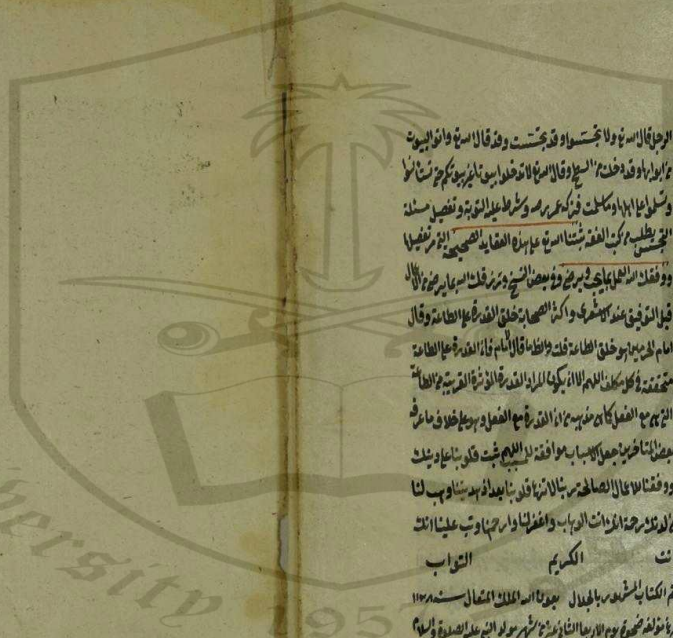 الرجل قال الله تع ولا تجسسوا وقد تجسست وقد قال الله تع واتوا البيوت
من ابوابها وقد دخلت من السطح وقال الله تع لا تدخلوا بيوتا غير بيوتكم حتى تستانسوا
وتسلموا على اهلها وما سلمت فتركه عمر رضه وشرط عليه التوبة وتفصيل مسئلة
التجسس يطلب من كتب الفقه ثبتنا الله تع على هذه العقايد الصحيحة التى مر تفصيلها
ووفقك الله للعمل بما يحب ويرضى وفى بعض النسخ ورزقك الله بما يرضى من
قيل التوفيق عند الاشعرى واكثر اصحابه خلق القدرة على الطاعة وقال
امام الحرمين هو خلق الطاعة قلت والظ ما قال الامام فان القدرة على الطاعة
متحققة فى كل مكلف اللهم الا ان يكون المراد القدرة المؤثرة القريبة من الطاعة
التى هى مع الفعل كما هو مذهبه من ان القدرة مع الفعل وهو على خلاف ما عرفه
بعض المتاخرين جعل الاسباب موافقة للمسبب اللهم ثبت قلوبنا على دينك
ووفقنا للاعمال الصالحة ربنا لا تزغ قلوبنا بعد اذ هديتنا وهب لنا
من لدنك رحمة انك انت الوهاب واغفر لنا وارحمنا وتب علينا انك
انت الكريم التواب
تم الكتاب المشهور بالجلال بعون الله الملك المتعال سنه
ضحوة يوم الاربعا الثانى من شهر مولد النبى عليه الصلوة والسلام
University 1957